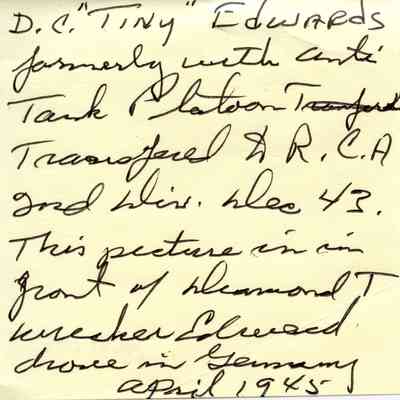 D.C. "TINY" EDWARDS
formerly with anti
Tank Platoon
Transfered to R.C.A
2nd Div. Dec 43.
This picture in in
front of Diamond T
wrecker Edward
drove in Germany
April 1945